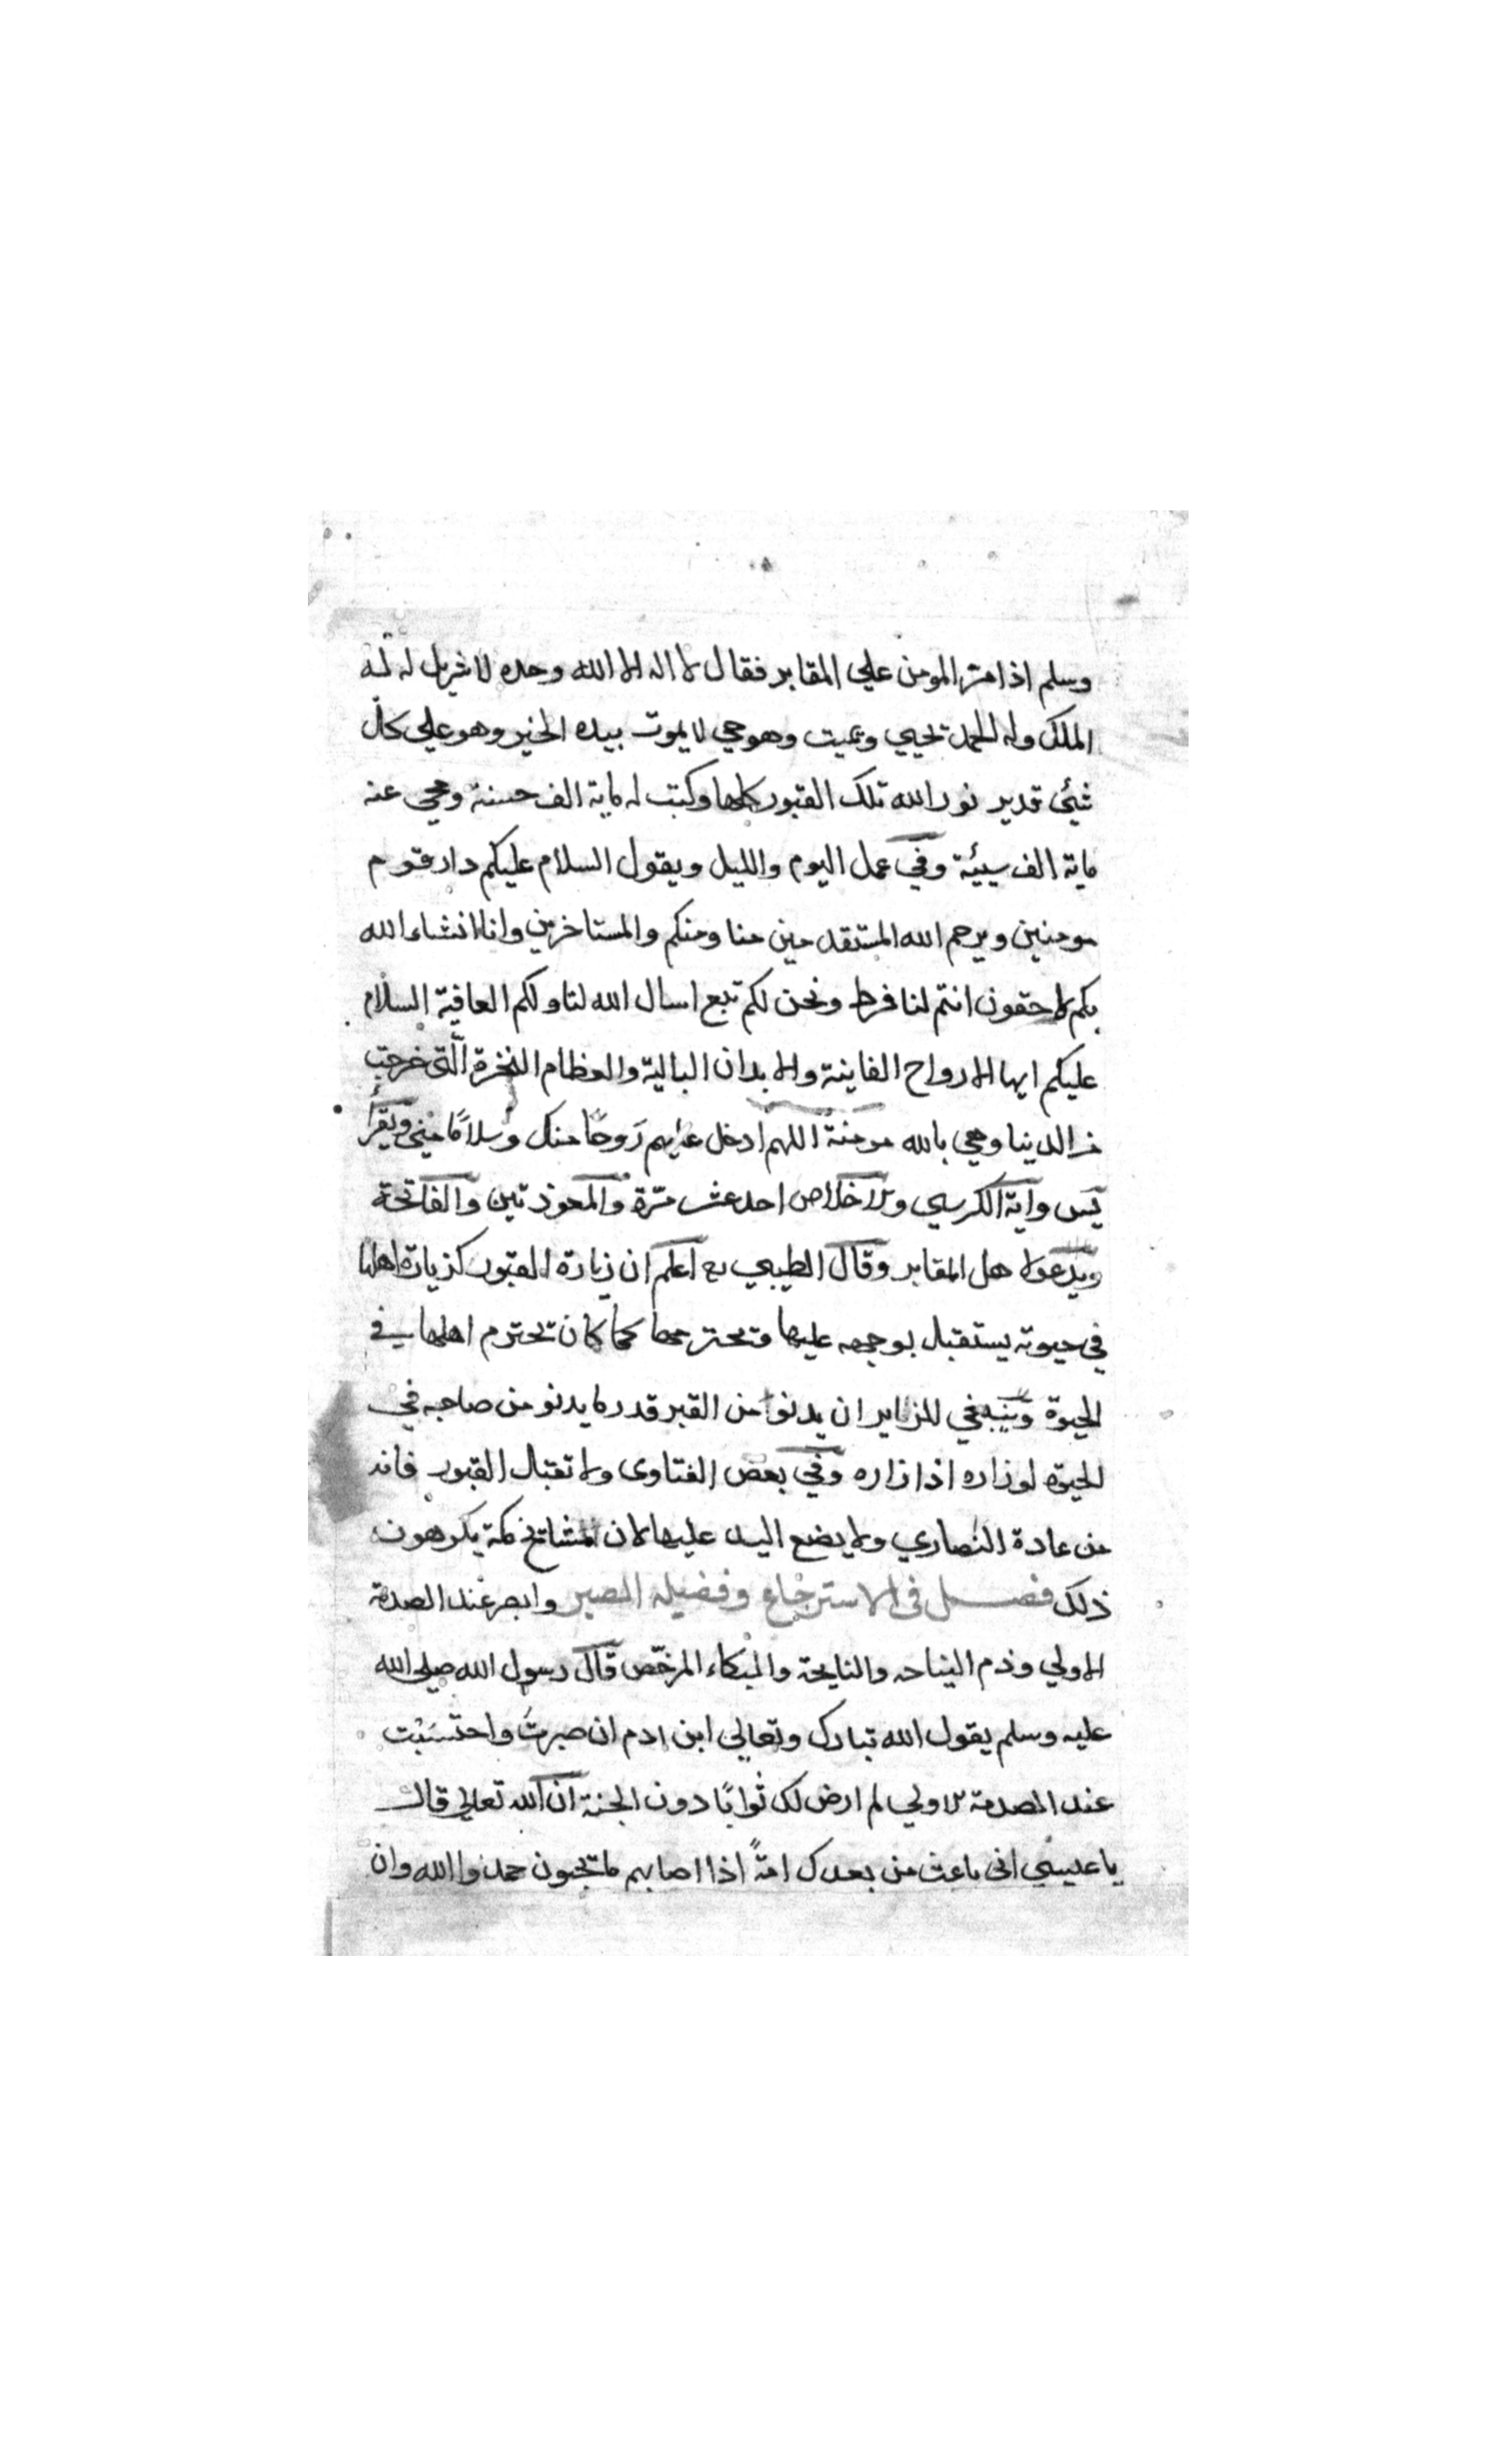 وسلم اذا مر المومن علي المقابر فقال لا اله الا الله وحده لا شريك له له
الملك وله الحمد يحيي ويميت وهو حي لا يموت بيده الخير وهو علي كل
شيئ قدير نور الله تلك القبور كلها وكتب له ماية الف حسنة ومحي عنه
ماية الف سيئة وفي عمل اليوم والليل ويقول السلام عليكم دار قوم
مومنين ويرحم الله المستقدمين منا ومنكم والمستاخرين وانا انشاء الله
بكم لاحقون انتم لنا فرط ونحن لكم تبع اسال الله لنا ولكم العافية السلام
عليكم ايها الارواح الفاينة والابدان البالية والعظام النخرة الّتي خرجت
من الدنيا وهي بالله مومنة اللهم ادخل عليهم رَوحًا منك وسلامًا مني ويقرأ
يٓس واية الكرسي والاخلاص احد عشر مرّة والمعوذتين والفاتحة
ويدعو لاهل المقابر وقال الطيبي رح اعلم ان زيارة القبور كزيارة اهلها
في حيوته يستقبل بوجهه عليها ويحترمها كما كان يحترم اهلها في
الحيوة وينبغي للزاير ان يدنوا من القبر قدر ما يدنو من صاحبه في
الحيوة لو زاره اذا زاره وفي بعض الفتاوى ولا تقبل القبور فانه
من عادة النصاري ولا يضع اليد عليها لان المشايخ مكة يكرهون
ذلك فصل في الاسترجاع وفضيله الصبر وابصر عند الصدمة
الاولي وذم النياحه والنايحة والبكاء المرخّص قال رسول الله صلي الله
عليه وسلم يقول الله تبارك وتعالي ابن ادم ان صبرتَ واحتسَبْت
عند الصدمة الاولي لم ارض لك ثوابًا دون الجنة ان الله تعالي قال
يا عيسي اني باعث من بعدك امةً اذا اصابهم ما يحبون حمدوا الله وان